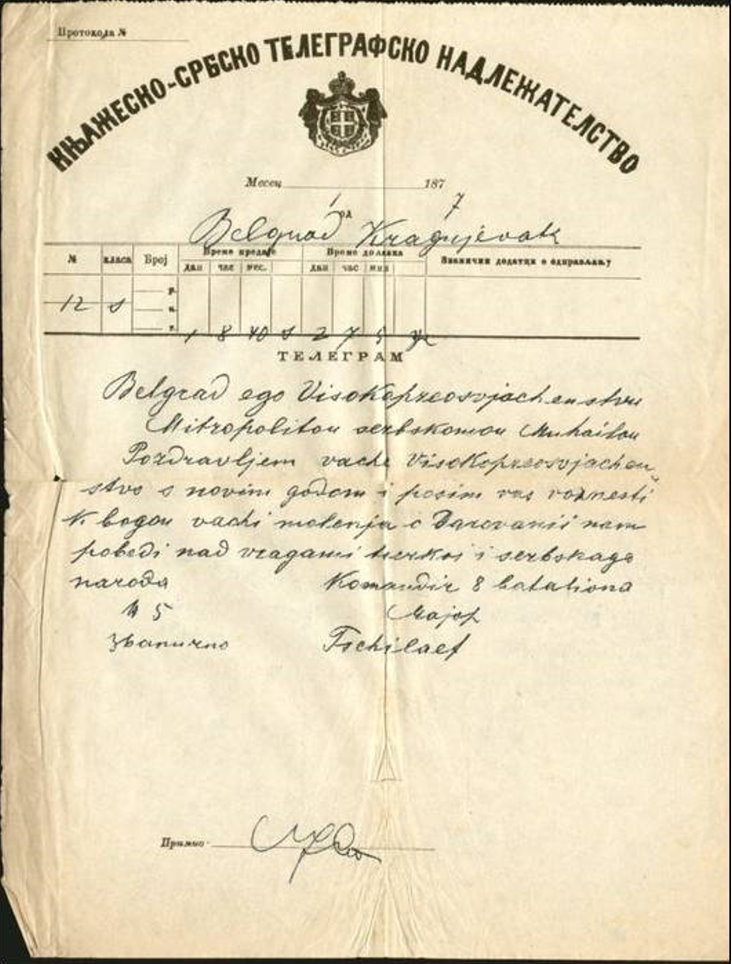 Протокола №
КЊАЖЕСКО-СРБСКО ТЕЛЕГРАФСКО НАДЛЕЖАТЕЛСТВО
Месец 1 187 7
од
Belgrad Kragujevatz
№ класа Број Време предаје Време долазка Званични додатци о одправљању
дан час мес. дан час мин
12 s
1 8 40 s 2 7 5
ТЕЛЕГРАМ
Belgrad ego Visokopreosvjachenstvu
Mitropolitou serbskomou Muhailou
Pozdravljem vache Visokopreosvjachen
stvo s novim godom i posim vas voznesti
k bogou vachi molenja o Darovanii nam
pobedi nad vragami tserkvi i serbskago
naroda Komandir 8 bataliona
№ 5 Major
званично Tschilaef
Примио